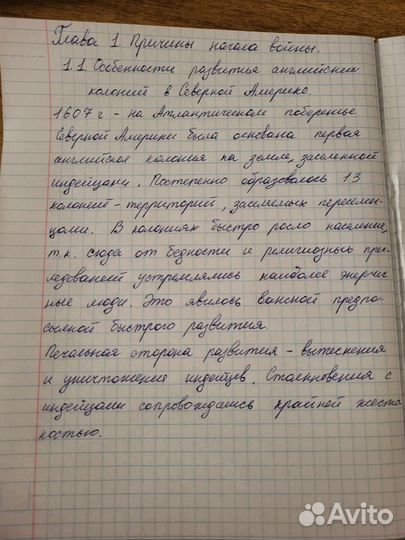 Глава 1. Причины начала войны.
1.1. Особенности развития английских
колоний в Северной Америке.
1607 г - на Атлантическом побережье
Северной Америки была основана первая
английская колония на земле, заселенной
индейцами. Постепенно образовалось 13
колоний - территорий, заселяемых переселен-
цами. В колониях быстро росло население,
т.к. сюда от бедности и религиозных прес-
ледований устремлялись наиболее энергич
ные люди. Это явилось важной предпо-
сылкой быстрого развития.
Печальная сторона развития - вытеснения
и уничтожения индейцев. Столкновения с
индейцами сопровождались крайней жесто
костью.
Avito